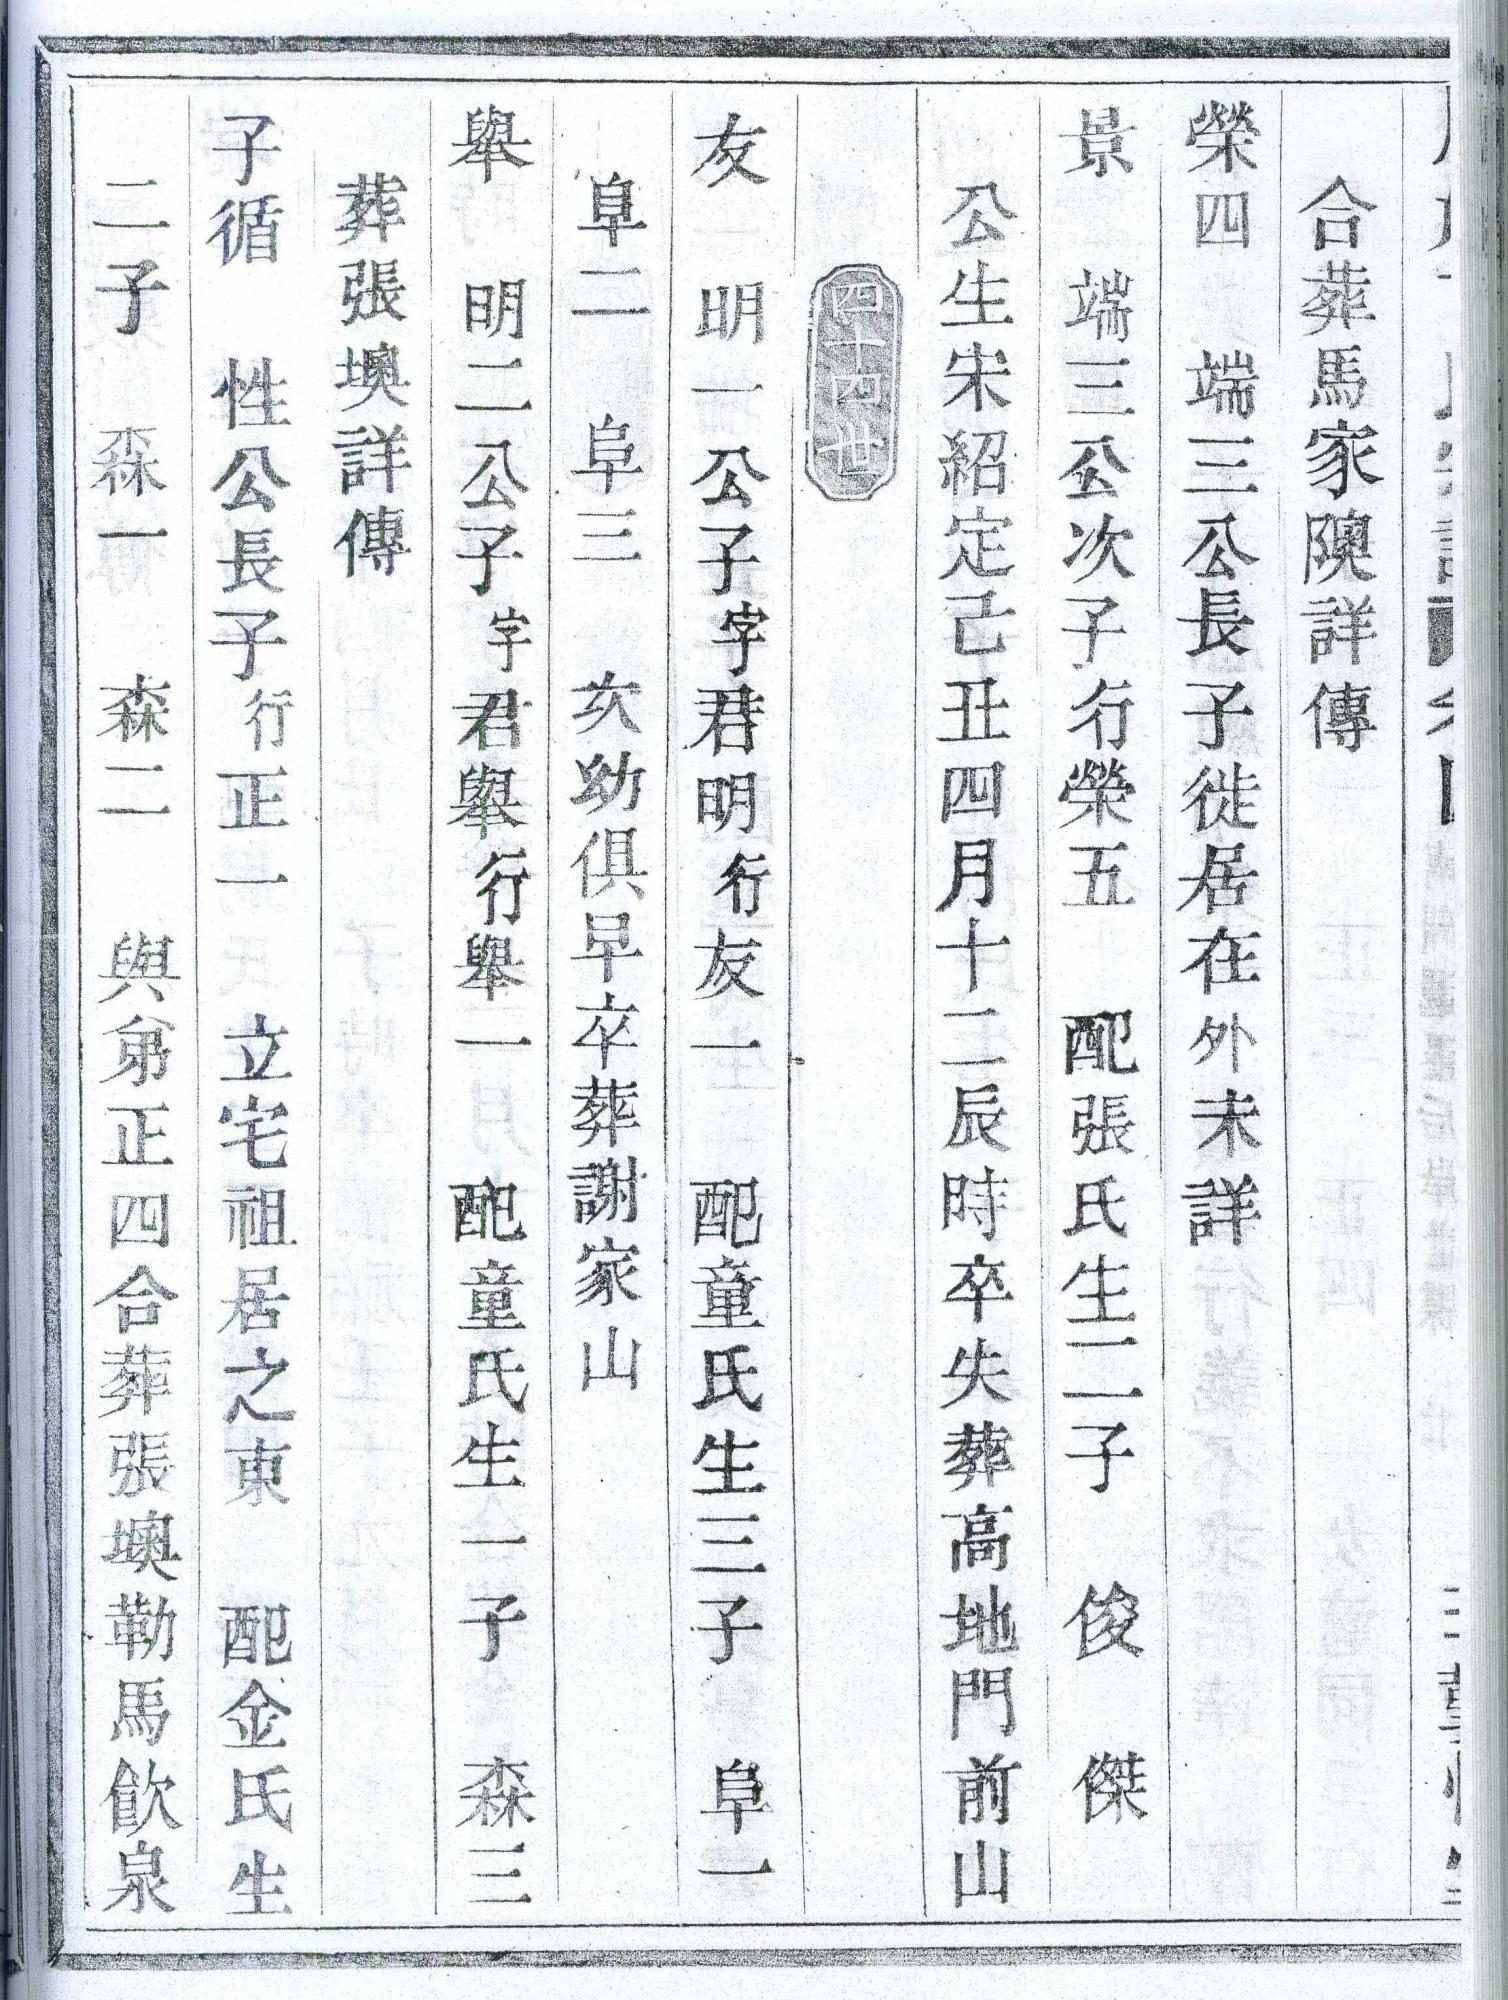 合葬馬家隩詳傳
榮四 端三公長子徙居在外未詳
景 端三公次子行榮五 配張氏生二子 俊 傑
公生宋紹定己丑四月十二辰時卒失葬高地門前山
四十四世
友 明一公子字君明行友一 配童氏生三子 阜一
阜二 阜三 次幼俱早卒葬謝家山
舉 明二公子字君舉行舉一 配童氏生一子 森三
葬張墺詳傳
子循 性公長子行正一 立宅祖居之東 配金氏生
二子 森一 森二 與弟正四合葬張墺勒馬飲泉